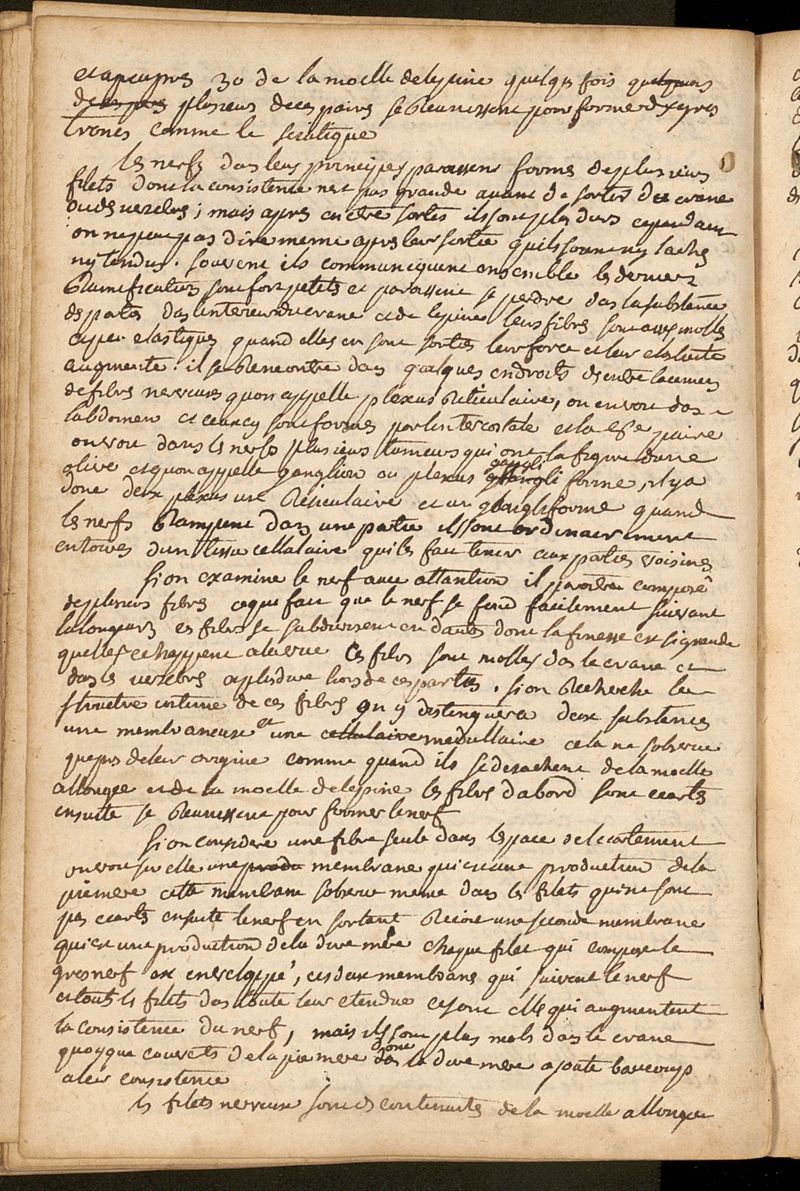 et apeupres 30 de la moelle delepine quelqs fois quelques
deces pers plusieurs deces paires se Reunissent pour former dxgros
trones comme le sciatique
les nerfs dans leurs principes paroissent formes deplusieurs
filets dont la consistence nest pas grande avant de sortir du crane
ou des vertebres; mais apres en etre sortis ils sont plus durs cependant
on ne peut pas dire meme apres leur sortie quils soient ny laches
ny tendus. souvent ils communiquent ensemble les dernieres
Ramifications sont fort petites et paroissent se perdre dans la substance
des parties dans linterieur du crane et de lepine leurs fibres sont assez molles
et peu elastiques quand elles en sont sorties leur force et leur elasticite
augmente. il se Rencontre dans quelques endroits des entrelacemens
de fibres nerveuses quon appelle plexus Reticulaire, on en voit dans
labdomen et ceux cy sont formes par lintercostale et la 8e paire
on voit dans les nerfs plusieurs tumeurs qui ont la figure dune
olive et quon appelle ganglion ou plexus gangli forme, il y a
donc deux plexus un Reticulaire et un gangliforme quand
les nerfs Rampent dans une partie ils sont ordinairement
entoures dun tissu cellulaire qui les fait tenir aux parties voisines
si on examine le nerf avec attantion il paroitra compose
deplusieurs fibres ce qui fait que le nerf se fend facilement suivant
la longueur, ces fibres se subdivisent en dautres dont la finesse est si grande
quelles echappent a la vue Ces fibres sont molles dans le crane et
dans les vertebres et plus dure hors de ces parties. si on Recherche la
structure intime de ces fibres on y distinguera deux substances
une membraneuse et une cellulaire medullaire cela ne sobserve
que pres de leur origine comme quand ils se detachent de la moelle
allongee et de la moelle delepine les fibres dabord sont ecartes
ensuite se Reunissent pour former le nerf
si on considere une fibre seule dans lespace de lecartement
on voit sur elle une produ membrane qui est une production de la
piemere cette membrane sobserve meme dans les filets qui ne sont
pas ecartes ensuite le nerf en sortant Recoit une seconde membrane
qui est une production de la dure mere chaque filet qui compose le
gros nerf est enveloppe', ces deux membranes qui suivent le nerf
et touts les filets dans toute leur etendue ce sont elles qui augmentent
la consistence du nerf, mais ils sont plus mols dans le crane
quoyque couverts de la pie mere donc la dure mere ajoute beaucoup
a leur consistence
les filets nerveux sont des continuites de la moelle allongee